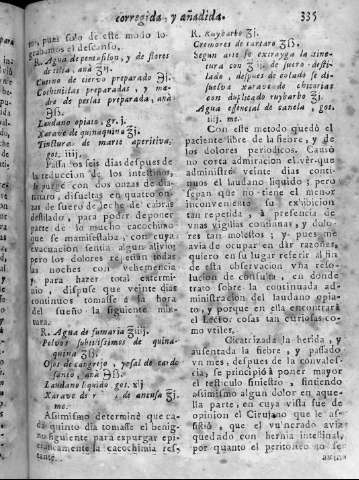 corregida, y añadida. 335
mo, pues solo de este modo lo-
grabamos el descanso.
R. Agua de pentafilon, y de flores
de tilia, ana ℥ij.
Cuerno de ciervo preparado ℈j.
Cochinillas preparadas, y ma-
dre de perlas preparada, anà
℈ß.
Laudano opiato, gr. j.
Xarave de quinaquina ℥j.
Tinctura de marte aperitiva,
got. iiij.
Passados seis dias despues de
la reduccion de los intestinos,
le purgè con dos onzas de dia-
tartaro, disueltas en quatro on-
zas de suero de leche de cabras
destilado, para poder deponer
parte de lo mucho cacochimo
que se manifestaba, con cuya
evacuacion sentia algun alivio;
pero los dolores repetian todas
las noches con vehemencia,
y para hacer total extermi-
nio, dispuse que veinte dias
continuos tomasse à la hora
del sueño la siguiente mix-
tura.
R. Agua de fumaria ℥iiij.
Polvos subtilissimos de quina-
quina ℥ß.
Ojos de cangrejo, y sal de cardo
santo, anà ℈ß.
Laudano liquido got. xij
Xarave de ℥j.
me.
Asimismo determinè que ca-
da quinto dia tomasse el benig-
no siguiente para expurgar epi-
craticamente la cacochimia res-
tante.
R. Ruybarbo ℥j.
Cremores de tartaro ℥ß.
Segun arte se extrayga la tinc-
tura con ℥ij. de suero desti-
lado, despues de colado se di-
suelva xarave de chicorias
con duplicado ruybarbo ℥j.
Agua esencial de canela, got.
iij. me.
Con este metodo quedò el
paciente libre de la fiebre, y de
los dolores periodicos. Causò-
no corta admiracion el vèr que
administrè veinte dias conti-
nuos el laudano liquido; pero
sepan que no tiene el menor
inconveniente su exhibicion
tan repetida, à presencia de
unas vigilias continuas, y dulo-
res tan molestos; y pues me
avia de ocupar en dàr razones,
quiero en su lugar referir al fin
de esta observacion una reso-
lucion de consulta, en donde
trato sobre la continuada ad-
ministracion del laudano opia-
to, y porque en ella encontrarà
el Lector cosas tan curiosas co-
mo utiles.
Cicatrizada la herida, y
ausentada la fiebre, y passado
un mes, despues de la convales-
cencia, se principiò à poner mayor
el testiculo siniestro, sintiendo
asimismo algun dolor en aque-
lla parte, en cuya vista fue de
opinion el Cirujano que le as-
sistiò, que el vulnerado avia
quedado con hernia intestinal,
por quanto el peritoneo no se